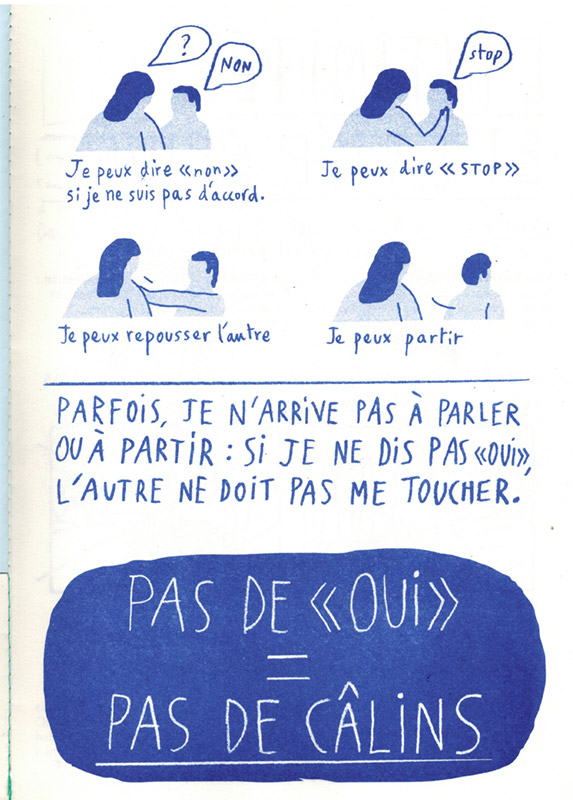 ?
NON
stop
Je peux dire «non»
si je ne suis pas d'accord.
Je peux dire «STOP»
Je peux repousser l'autre
Je peux partir
PARFOIS, JE N'ARRIVE PAS À PARLER
OU À PARTIR : SI JE NE DIS PAS «OUI»,
L'AUTRE NE DOIT PAS ME TOUCHER.
PAS DE «OUI»
=
PAS DE CÂLINS